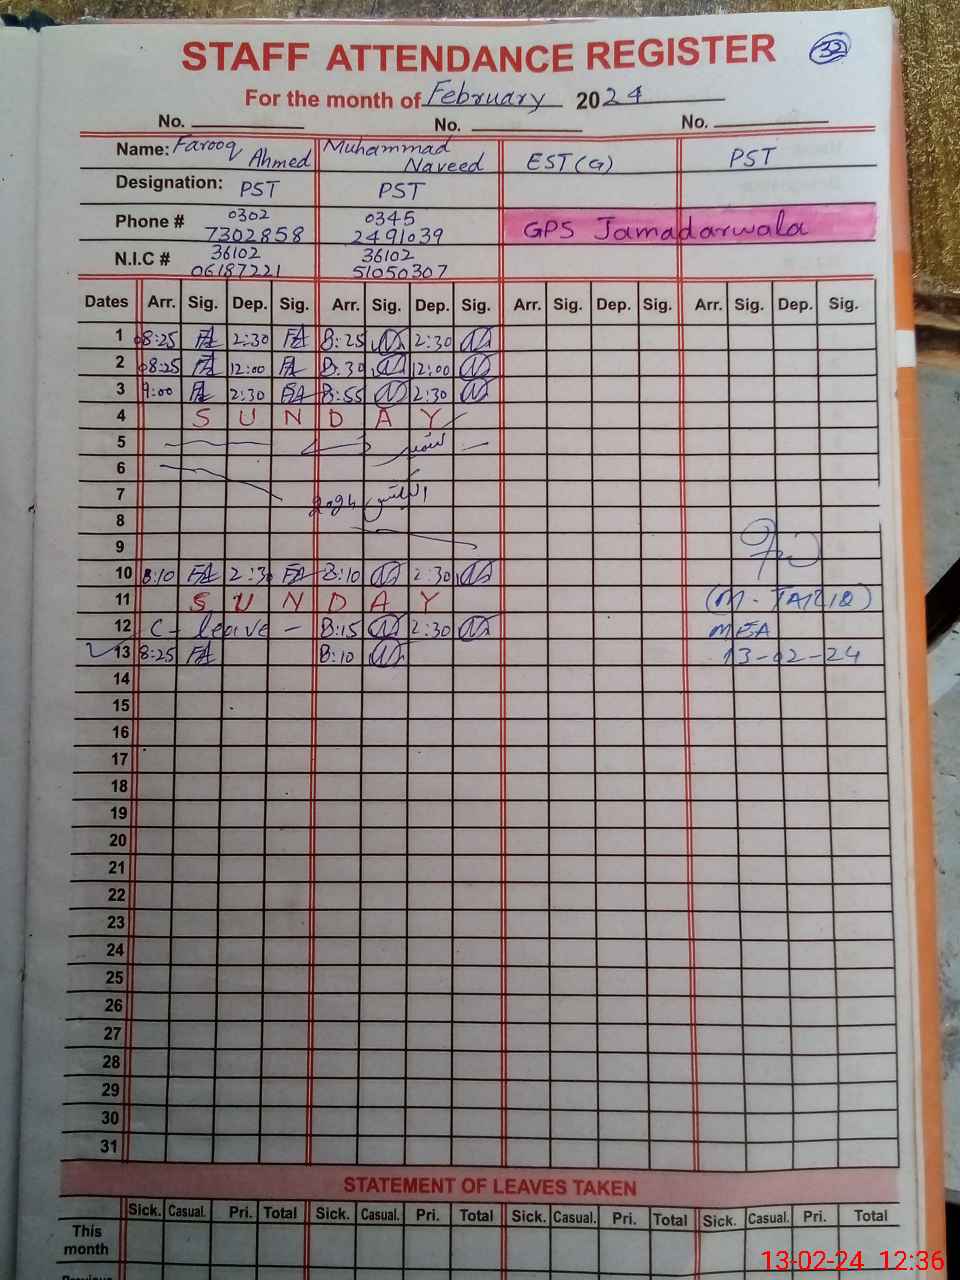 STAFF ATTENDANCE REGISTER 32
For the month of February 2024
No. No. No.
Name: Farooq Ahmed Muhammad Naveed EST(G) PST
Designation: PST PST
Phone # 0302 7302858 0345 2491039 GPS Jamadarwala
N.I.C # 36102 06187221 36102 51050307
Dates Arr. Sig. Dep. Sig. Arr. Sig. Dep. Sig. Arr. Sig. Dep. Sig. Arr. Sig. Dep. Sig.
1 08:25 FA 2:30 FA 8:25 2:30
2 08:25 FA 12:00 FA 8:30 12:00
3 9:00 FA 2:30 FA 8:55 2:30
4 S U N D A Y
5
6
7 الیکشن 2024
8
9
10 8:10 FA 2:30 FA 8:10 2:30
11 S U N D A Y (M. TARIQ)
12 C - leave - 8:15 2:30 MEA
13 8:25 FA 8:10 13-02-24
14
15
16
17
18
19
20
21
22
23
24
25
26
27
28
29
30
31
STATEMENT OF LEAVES TAKEN
Sick. Casual. Pri. Total Sick. Casual. Pri. Total Sick. Casual. Pri. Total Sick. Casual. Pri. Total
This month
13-02-24 12:36